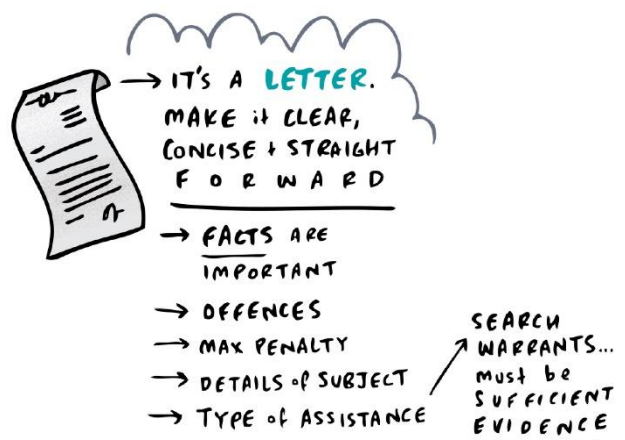 → IT'S A LETTER.
MAKE it CLEAR,
CONCISE + STRAIGHT
FORWARD
→ FACTS ARE
IMPORTANT
→ OFFENCES
→ MAX PENALTY
→ DETAILS of SUBJECT
→ TYPE of ASSISTANCE
SEARCH
WARRANTS...
must be
SUFFICIENT
EVIDENCE